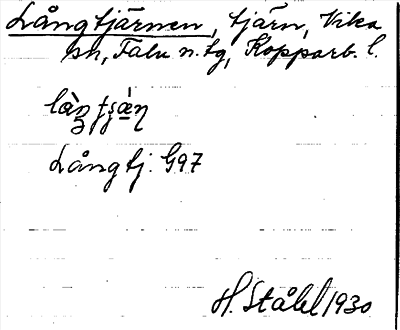 Långtjärnen, tjärn, Vika
sn, Falu n. tg, Kopparb. l.
Långtj. G97
H. Ståhl 1930